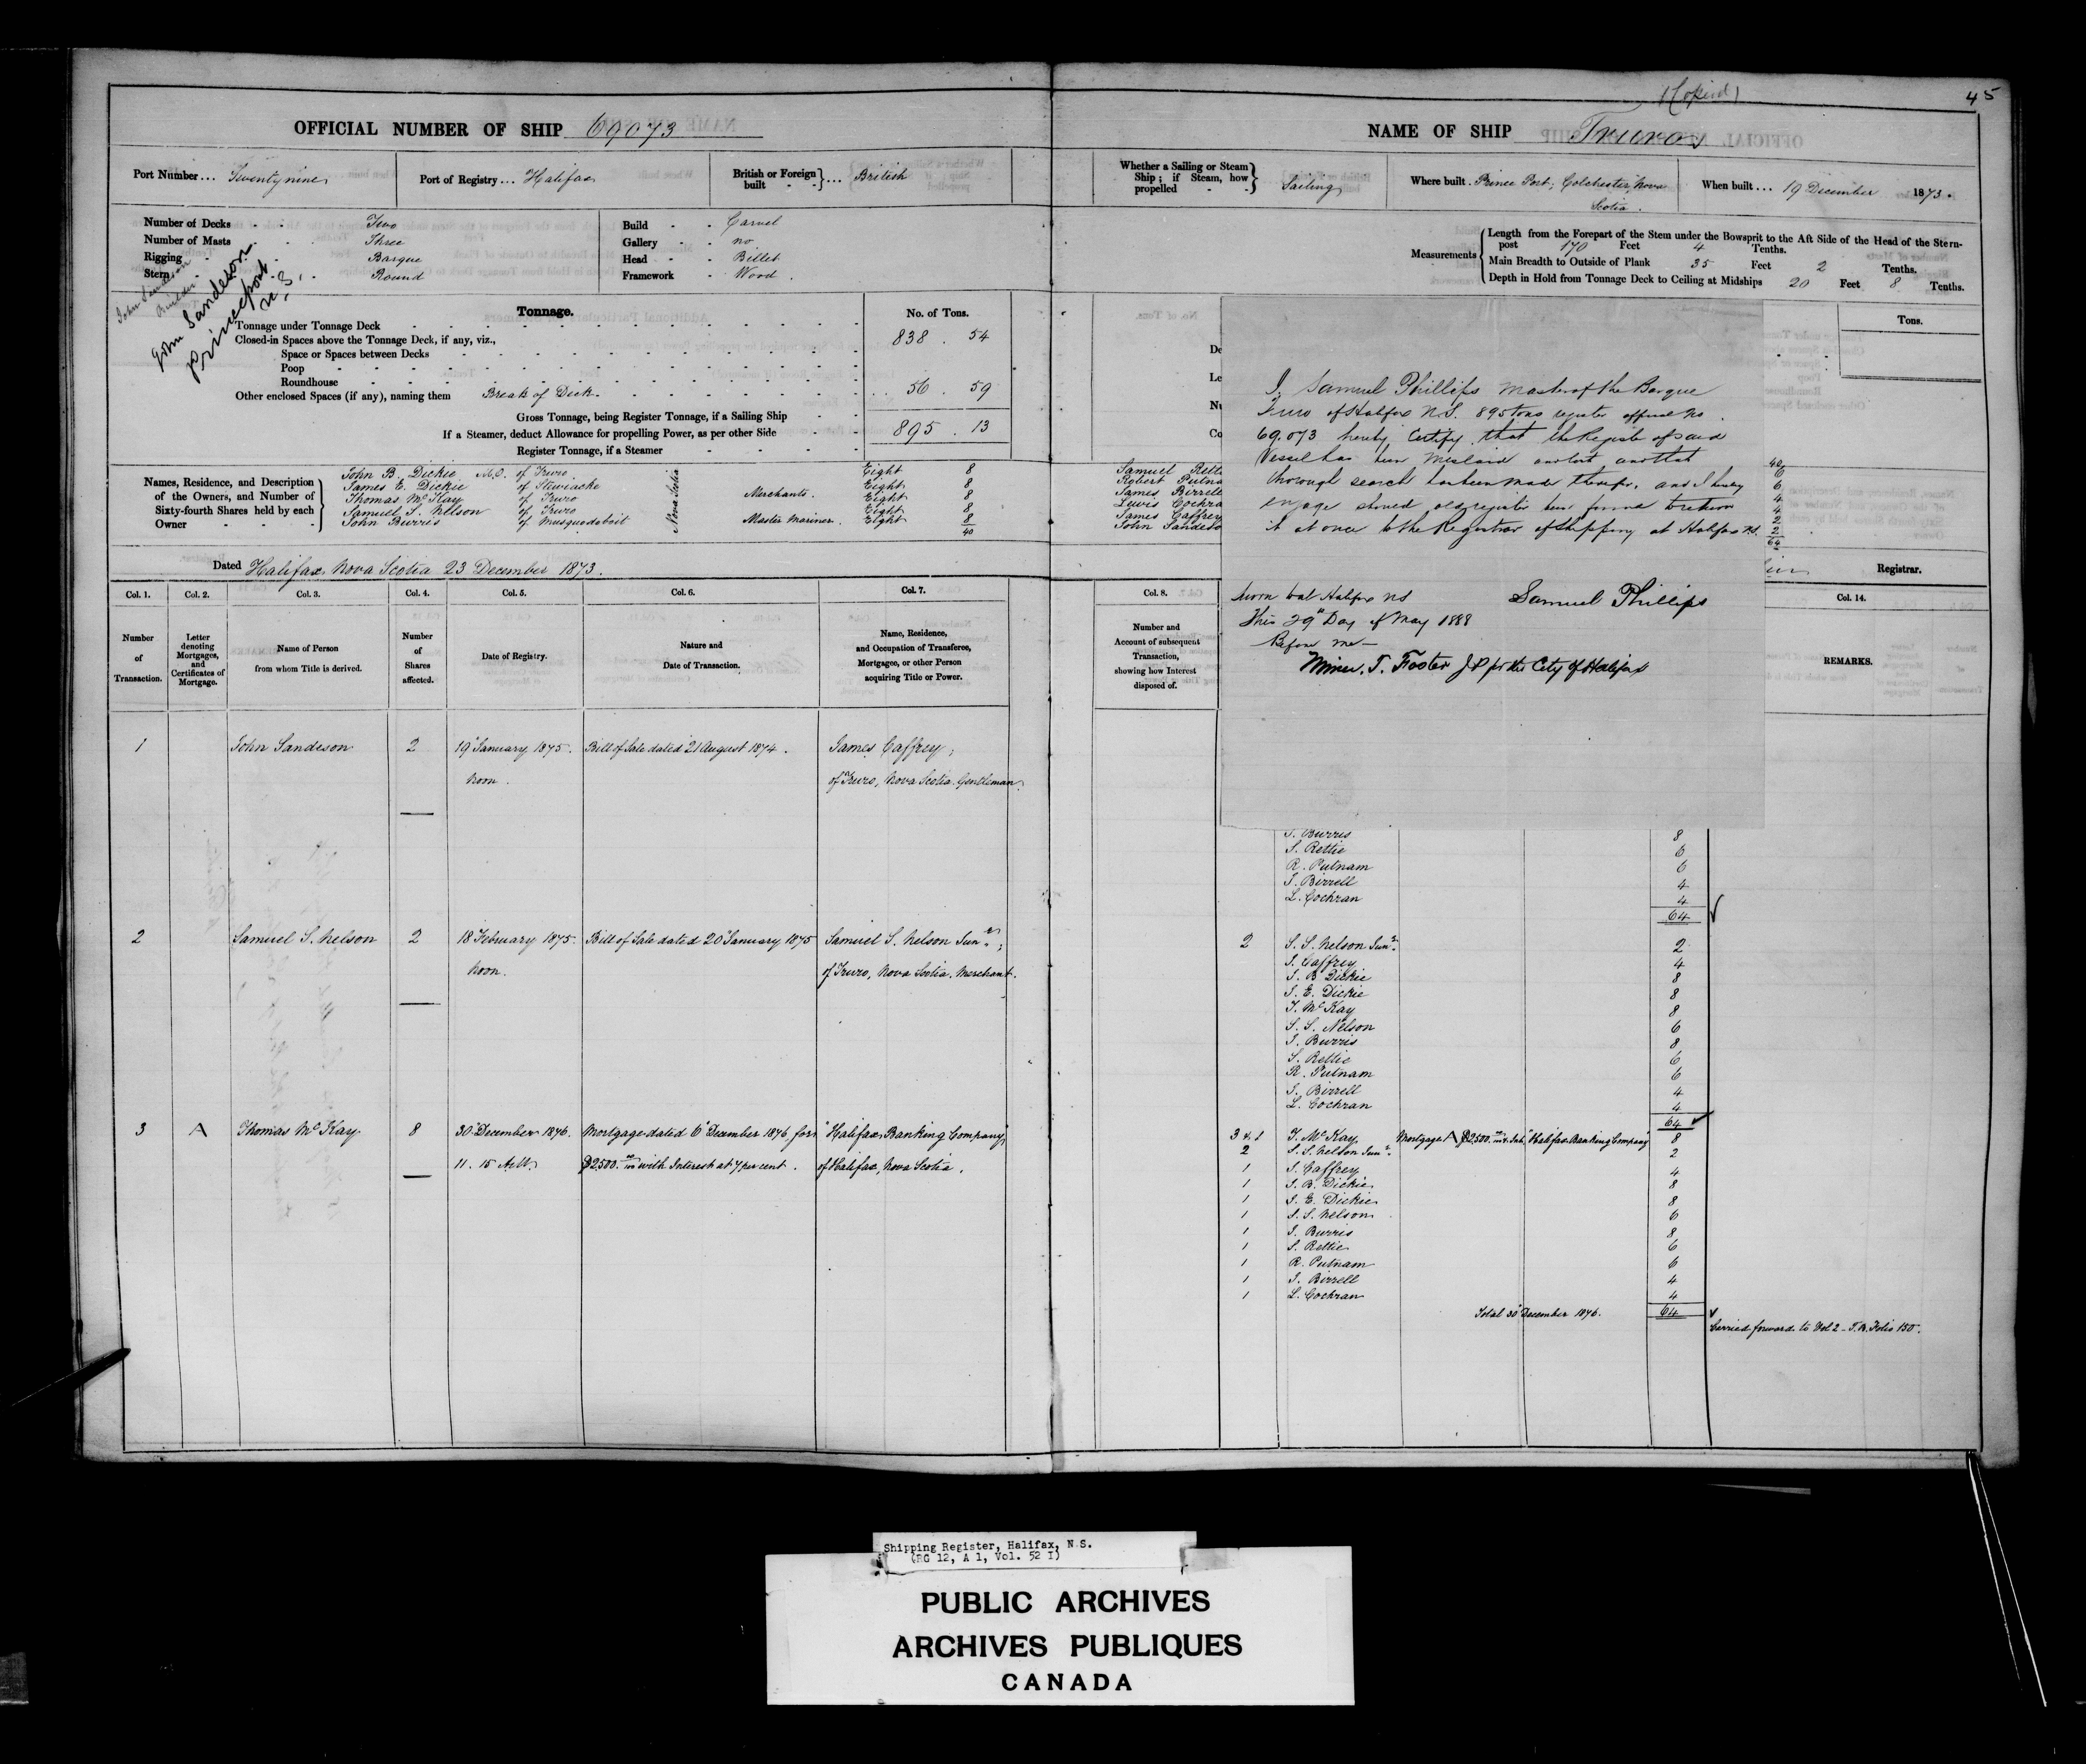 (Copied)
45
OFFICIAL NUMBER OF SHIP 69073
NAME OF SHIP Truro
Port Number... Seventy nine
Port of Registry... Halifax
British or Foreign built - - }... British
Whether a Sailing or Steam Ship; if Steam, how propelled - - } Sailing
Where built. Prince Port, Colchester, Nova Scotia.
When built... 19 December 1873.
Number of Decks - - Two
Number of Masts - Three
Rigging - - Barque
Stern - - Round
Build - - Carvel
Gallery - - no
Head - - Billet
Framework - Wood.
Measurements
Length from the Forepart of the Stem under the Bowsprit to the Aft Side of the Head of the Stern-
post 170 Feet 4 Tenths.
Main Breadth to Outside of Plank 35 Feet 2 Tenths.
Depth in Hold from Tonnage Deck to Ceiling at Midships 20 Feet 8 Tenths.
John Sandeson
Builder
John Sandeson
Princeport
N.S.
Tonnage.
No. of Tons.
Tonnage under Tonnage Deck 838 . 54
Closed-in Spaces above the Tonnage Deck, if any, viz.,
Space or Spaces between Decks
Poop
Roundhouse
Other enclosed Spaces (if any), naming them Break of Deck 56 . 59
Gross Tonnage, being Register Tonnage, if a Sailing Ship 895 . 13
If a Steamer, deduct Allowance for propelling Power, as per other Side
Register Tonnage, if a Steamer
Tons.
De
Le
Nu
Co
Names, Residence, and Description of the Owners, and Number of Sixty-fourth Shares held by each Owner
John B. Dickie M.D. of Truro Eight 8
James E. Dickie of Stewiacke Eight 8
Thomas McKay of Truro Merchants. Eight 8
Samuel S. Nelson of Truro Eight 8
John Burris of Musquodoboit Master Mariner. Eight 8
Nova Scotia
40
Samuel Retti
Robert Putna
James Birrell
Lewis Cochra
James Caffrey
John Sandeso
40
6
6
4
4
2
2
64
I, Samuel Phillips Master of the Barque
Truro of Halifax N.S. 895 tons register official no.
69.073 hereby Certify that the Register of said
Vessel has been Mislaid and lost and that
thorough search has been made therefor, and I hereby
engage should old register been found to return
it at once to the Registrar of Shipping at Halifax N.S.
Sworn to at Halifax NS
This 29th Day of May 1888
Before me -
Samuel Phillips
Miner. T. Foster J P for the City of Halifax
Dated Halifax, Nova Scotia 23 December 1873.
Registrar.
Col. 1.
Col. 2.
Col. 3.
Col. 4.
Col. 5.
Col. 6.
Col. 7.
Col. 8.
Col. 14.
Number of Transaction.
Letter denoting Mortgages, and Certificates of Mortgage.
Name of Person from whom Title is derived.
Number of Shares affected.
Date of Registry.
Nature and Date of Transaction.
Name, Residence, and Occupation of Transferee, Mortgagee, or other Person acquiring Title or Power.
Number and Account of subsequent Transaction, showing how Interest disposed of.
REMARKS.
1 John Sandeson 2 19 January 1875. Bill of Sale dated 21 August 1874. James Caffrey,
Noon. of Truro, Nova Scotia. Gentleman.
J. Burris 8
S. Rettie 6
R. Putnam 6
J. Birrell 4
L. Cochran 4
64
2 Samuel S. Nelson 2 18 February 1875. Bill of Sale dated 20 January 1875 Samuel S. Nelson Junr;
Noon. of Truro, Nova Scotia. Merchant.
2 S. S. Nelson Junr. 2
J. Caffrey 4
J. B. Dickie 8
J. E. Dickie 8
T. McKay 8
S. S. Nelson 6
J. Burris 8
S. Rettie 6
R. Putnam 6
J. Birrell 4
L. Cochran 4
64
3 A Thomas McKay 8 30 December 1876. Mortgage dated 6 December 1876, for "Halifax Banking Company,"
11.15 A.M. $2500.00 with Interest at 7 per cent. of Halifax, Nova Scotia.
3 & 1 T. McKay, Mortgage A $2500. "Halifax Banking Company" 8
2 S. S. Nelson Junr. 2
1 J. Caffrey 4
1 J. B. Dickie 8
1 J. E. Dickie 8
1 S. S. Nelson 6
1 J. Burris 8
1 S. Rettie 6
1 R. Putnam 6
1 J. Birrell 4
1 L. Cochran 4
Total 30 December 1876. 64
Carried forward to Vol 2 - T.B. Folio 150.
Shipping Register, Halifax, N.S.
(RG 12, A 1, Vol. 52 I)
PUBLIC ARCHIVES
ARCHIVES PUBLIQUES
CANADA